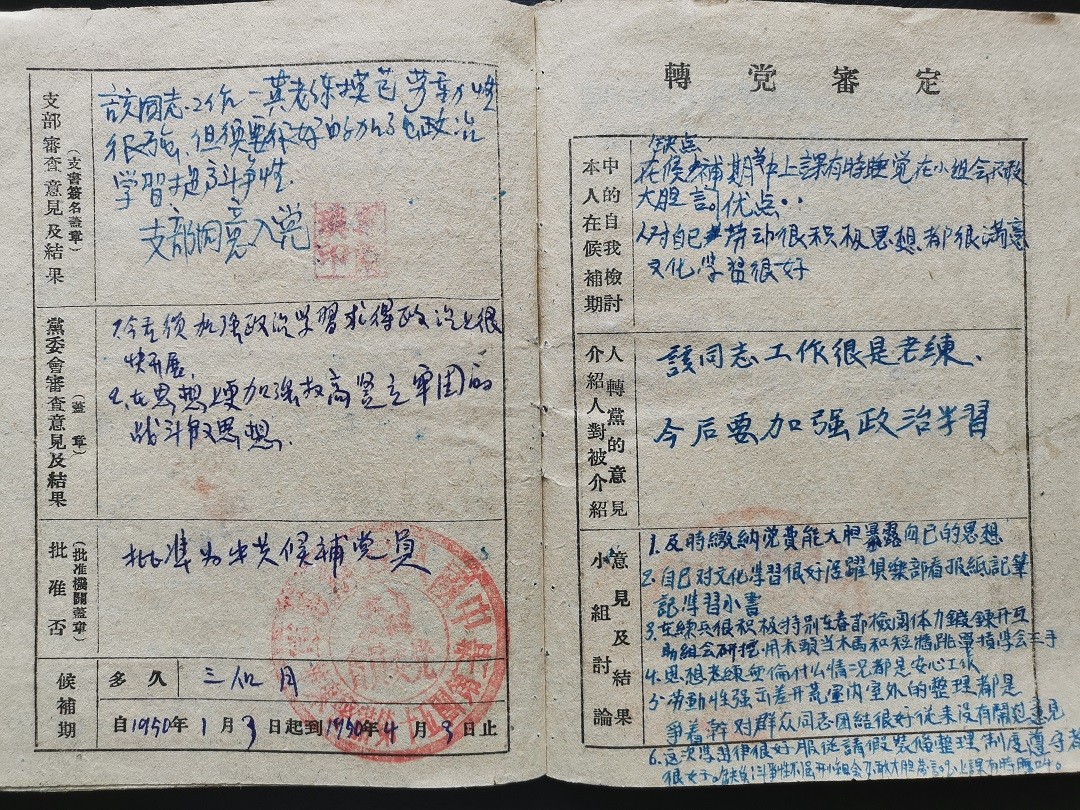 支部審查意見及結果
(支書簽名蓋章)
该同志工作一 老练模范 劳动性
很强,但须要很好的加强政治
学習 斗争性.
支部同意入党
黨委會審查意見及結果
(蓋章)
1.今后须加强政治学習求得政治上很
快开展.
2.在思想上要加强 高 立 的
战斗 思想.
批准否
(批准機關蓋章)
批準为中共候補党員
候補期
多久
三個月
自1950年1月3日起到1950年4月3日止
轉党審定
本人在候補期
中的自我檢討
缺点
在候補期 中上課有時睡觉在小組会不敢
大胆 优点..
对自己 劳动很积极思想都很满意
文化学習很好
介紹人對被介紹
人轉黨的意見
該同志工作很是老練、
今后要加强政治学習
小組討論
意見及結果
1.及時繳納党費能大胆暴露自己的思想
2.自己对文化学習很好活躍俱樂部看报紙記筆
記学習小書
3.在練兵很积极特别在春節 体力鍛鍊开互
助組会研 用木頭当木馬和短牆跳單槓学会三手
4.思想老練無倫什么情况都是安心工作
5.劳動性强 差开荒室内室外的整理都是
爭着幹对群众同志团結很好從来没有鬧过意見
6.这次学習 很好服從請假裝備整理制度遵守者
很好。缺点:斗争性不 小組会不敢大胆 上課有時瞌 。